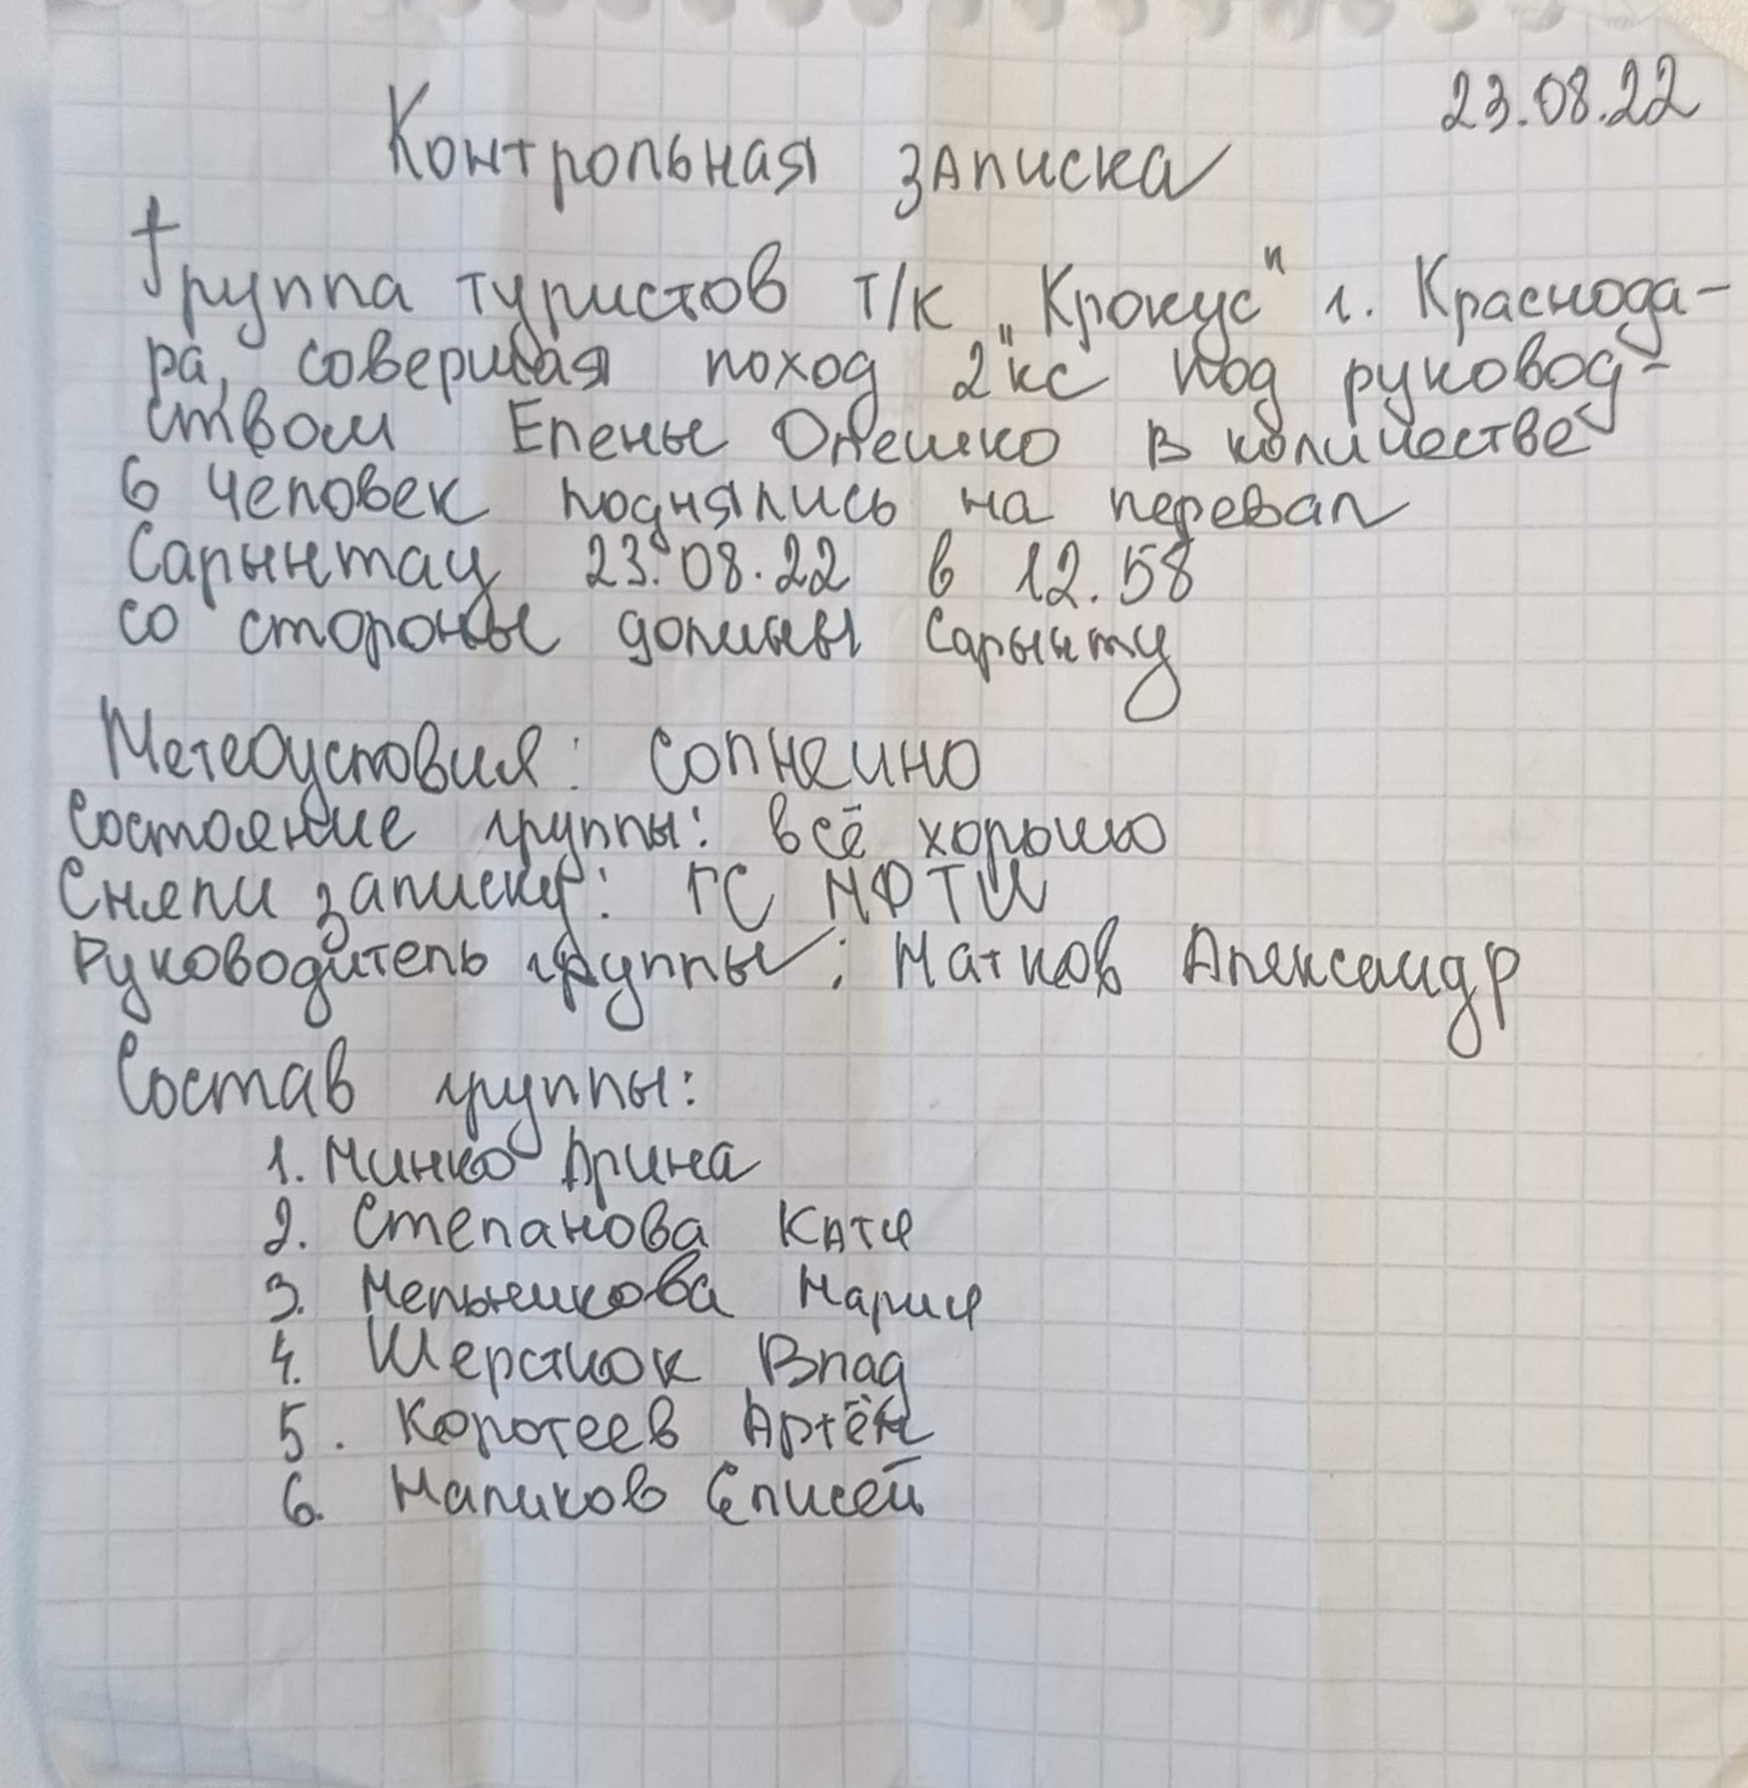 23.08.22
Контрольная записка
Группа туристов т/к „Крокус" г. Краснода-
ра, совершая поход 2 кс под руковод-
ством Елены Олешко в количестве
6 человек поднялись на перевал
Сарынтау 23.08.22 в 12.58
со стороны долины Сарынту
Метеоусловия: солнечно
Состояние группы: всё хорошо
Сняли записку: ГС МФТИ
Руководитель группы: Матков Александр
Состав группы:
1. Минко Арина
2. Степанова Катя
3. Мельникова Мария
4. Шерстюк Влад
5. Коротеев Артём
6. Маликов Елисей